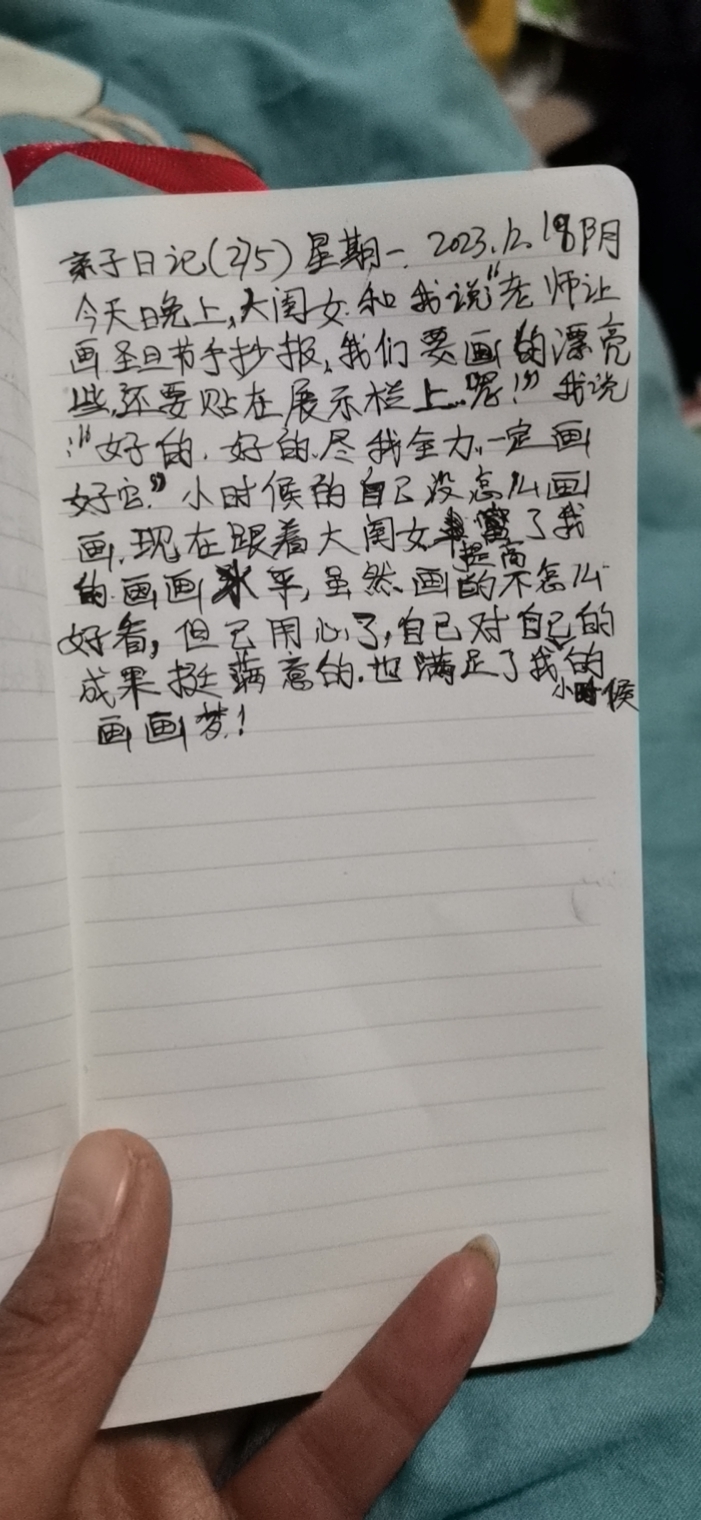 亲子日记(275) 星期一. 2023.12.18阴
今天晚上,大闺女和我说"老师让
画圣旦节手抄报,我们要画的漂亮
些,还要贴在展示栏上.喔!"我说
:"好的.好的.尽我全力.一定画
好它."小时候的自己没怎么画
画.现在跟着大闺女提高了我
的画画水平,虽然画的不怎么
好看,但已用心了,自己对自己的
成果挺满意的.也满足了我小时候的
画画梦!